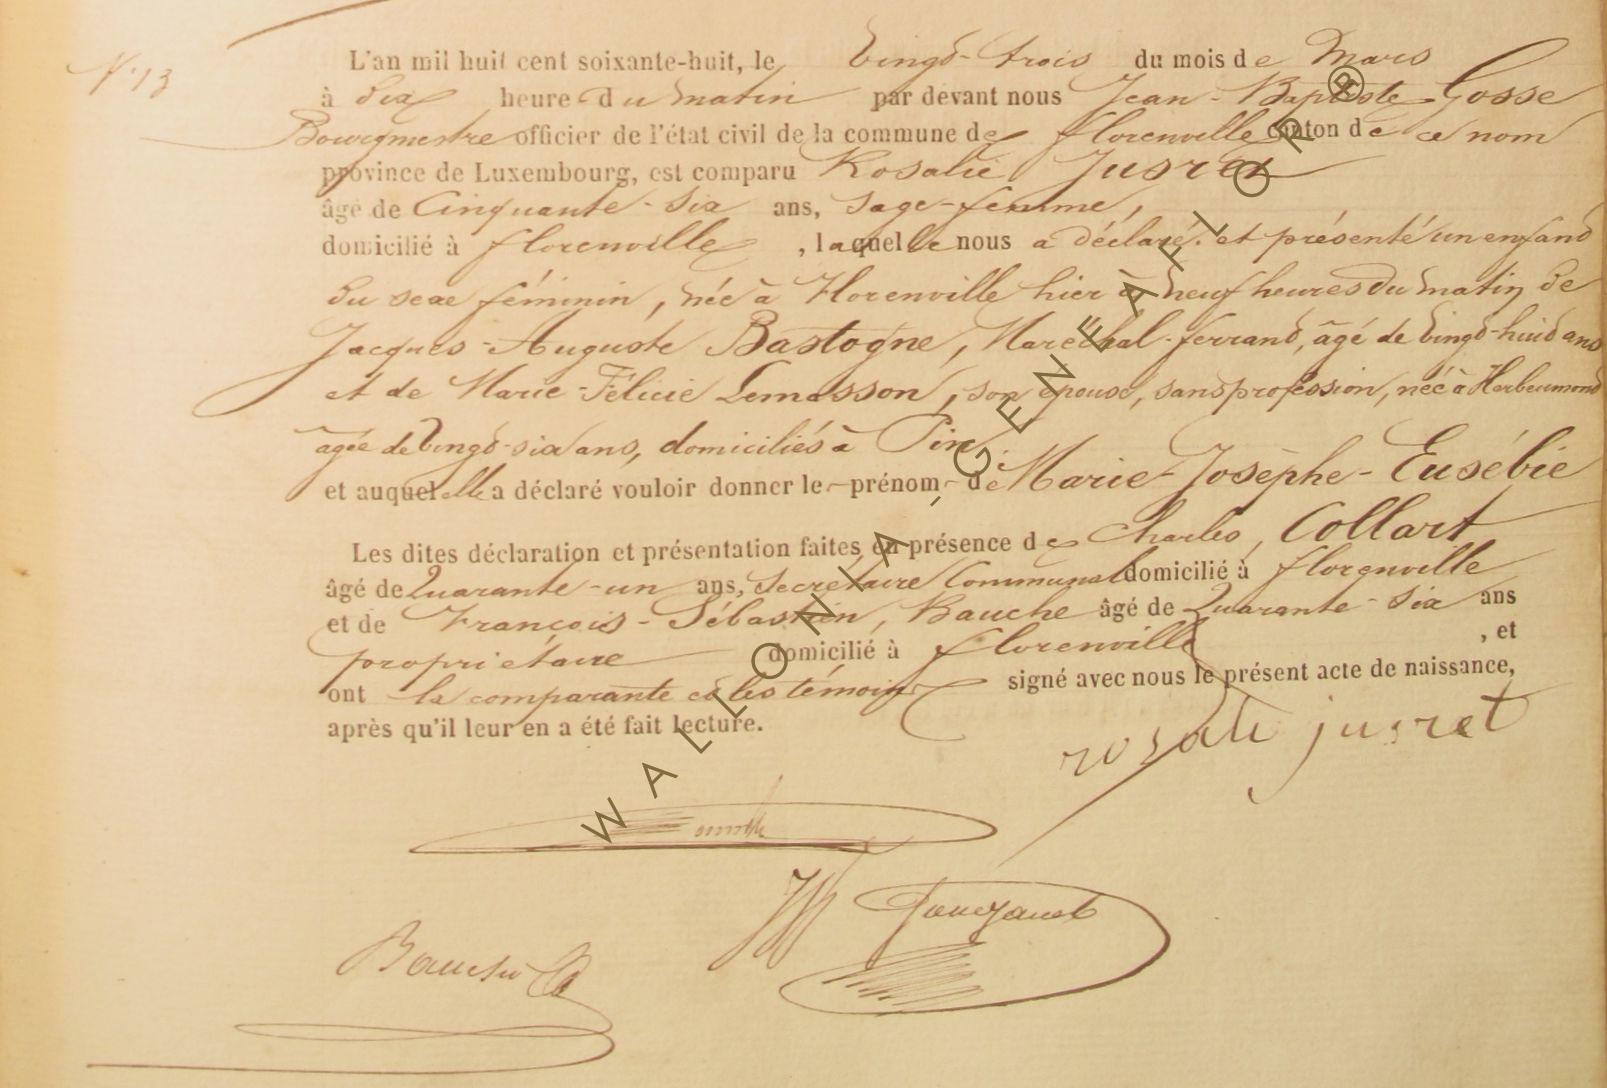 N° 13
L'an mil huit cent soixante-huit, le vingt-trois du mois de Mars
à dix heure du matin par devant nous Jean-Baptiste Gosse
Bourgmestre officier de l'état civil de la commune de florenville canton de ce nom
province de Luxembourg, est comparu Rosalie Jusret
âgé de Cinquante-six ans, sage-femme,
domicilié à florenville, laquelle nous a déclaré et présenté un enfant
du sexe féminin, née à Florenville hier à neuf heures du matin de
Jacques-Auguste Bastogne, Maréchal-ferrant, âgé de vingt-huit ans
et de Marie-Félicie Lemasson, son épouse, sans profession, née à Herbeumont
âgée de vingt-six ans, domiciliés à Pin
et auquel elle a déclaré vouloir donner le prénom de Marie-Josèphe-Eusébie
Les dites déclaration et présentation faites en présence de Charles, Collart
âgé de Quarante-un ans, Secrétaire Communal domicilié à florenville
et de François-Sébastien, Bauche âgé de Quarante-six ans
propriétaire domicilié à florenville, et
ont la comparante et les témoins signé avec nous le présent acte de naissance,
après qu'il leur en a été fait lecture.
rosali jusret
WALLONIA-GENEAFLOR®